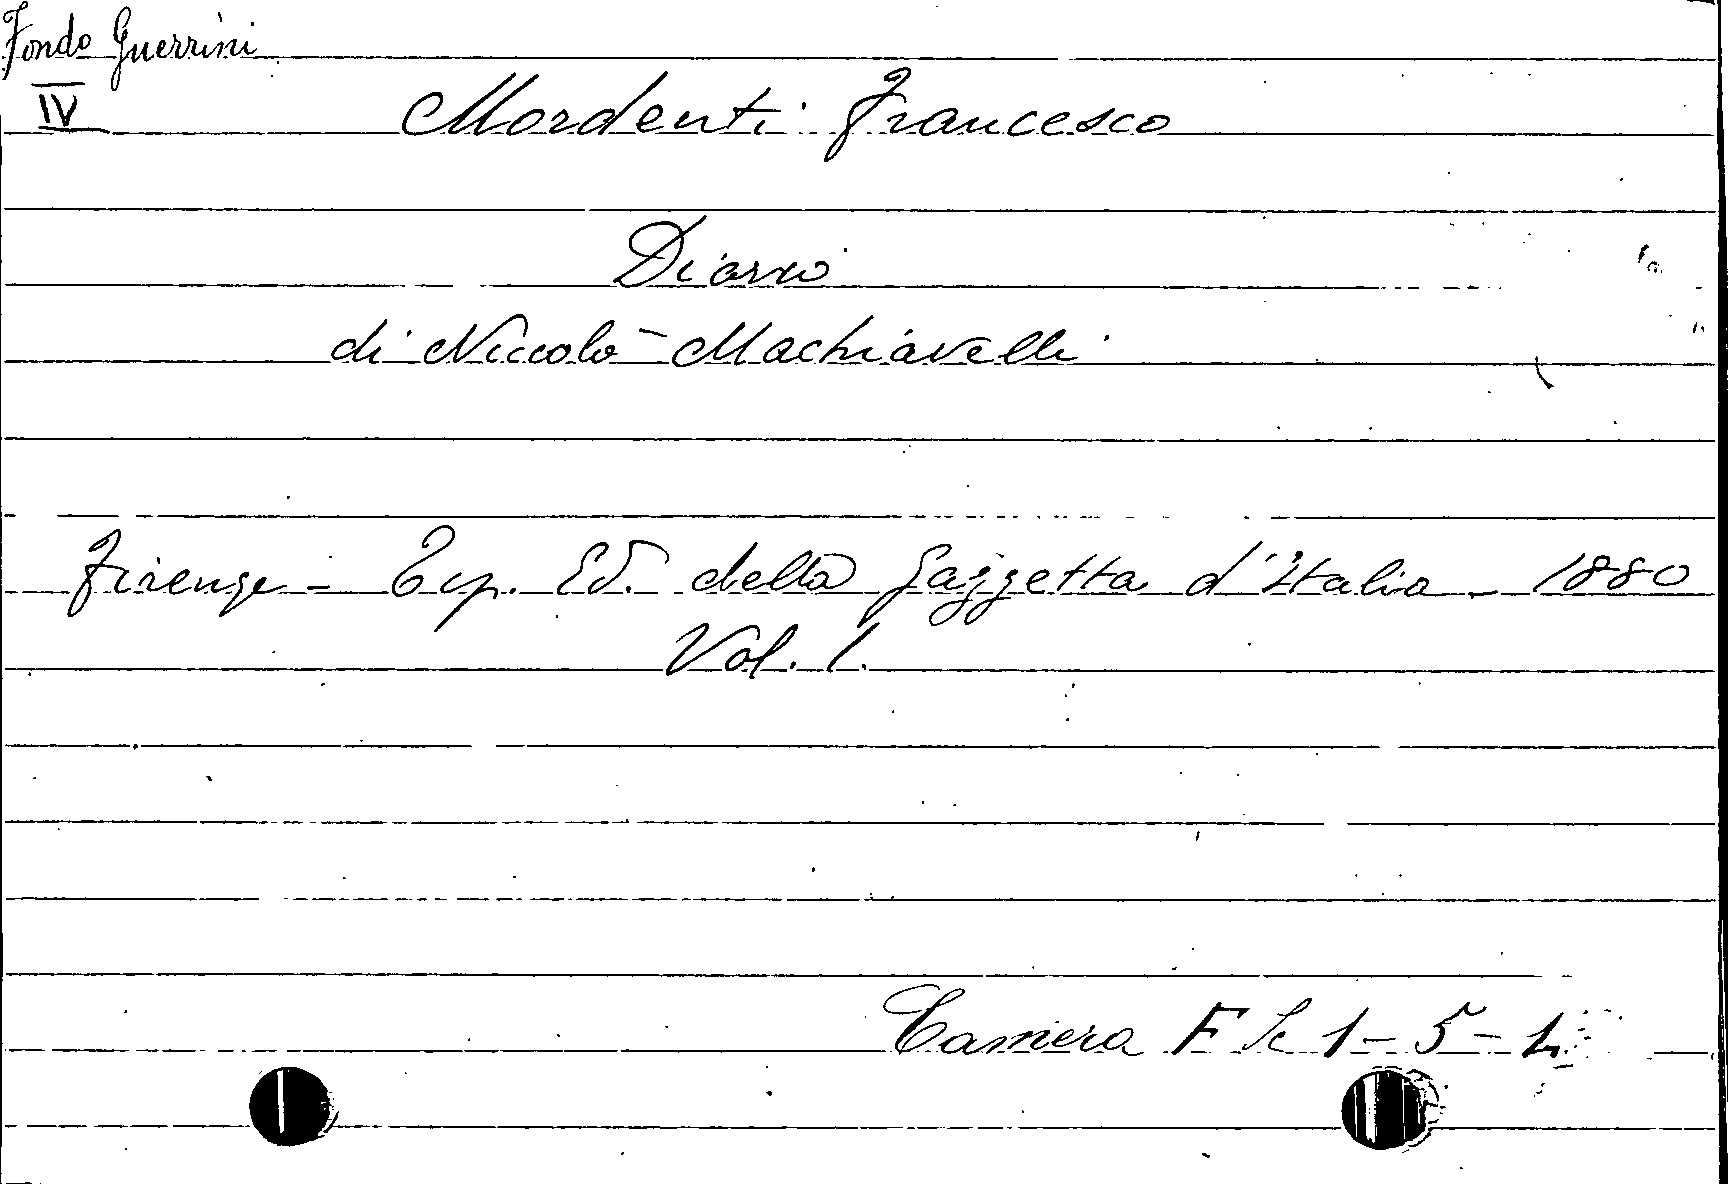 Fondo Guerrini
IV
Mordenti Francesco
Diario
di Niccolò Machiavelli
Firenze - Tip. Ed. della Gazzetta d'Italia - 1880
Vol. 1.
Camera F Sc 1 - 5 - 1